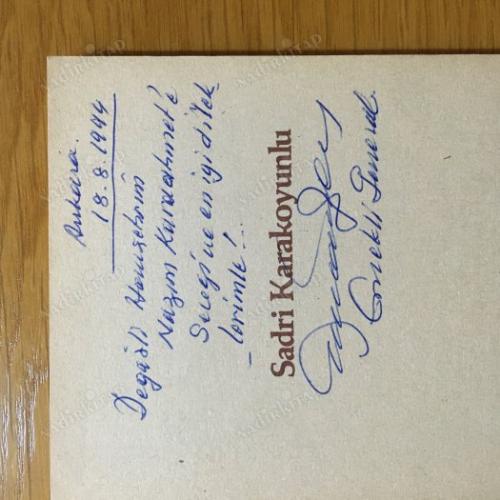 Ankara.
18.8.1994
Değerli Hemşehrim
Nazım Karaahmet'e
Sevgi ve en iyi dilek
-lerimle!...
Sadri Karakoyunlu
Emekli General.